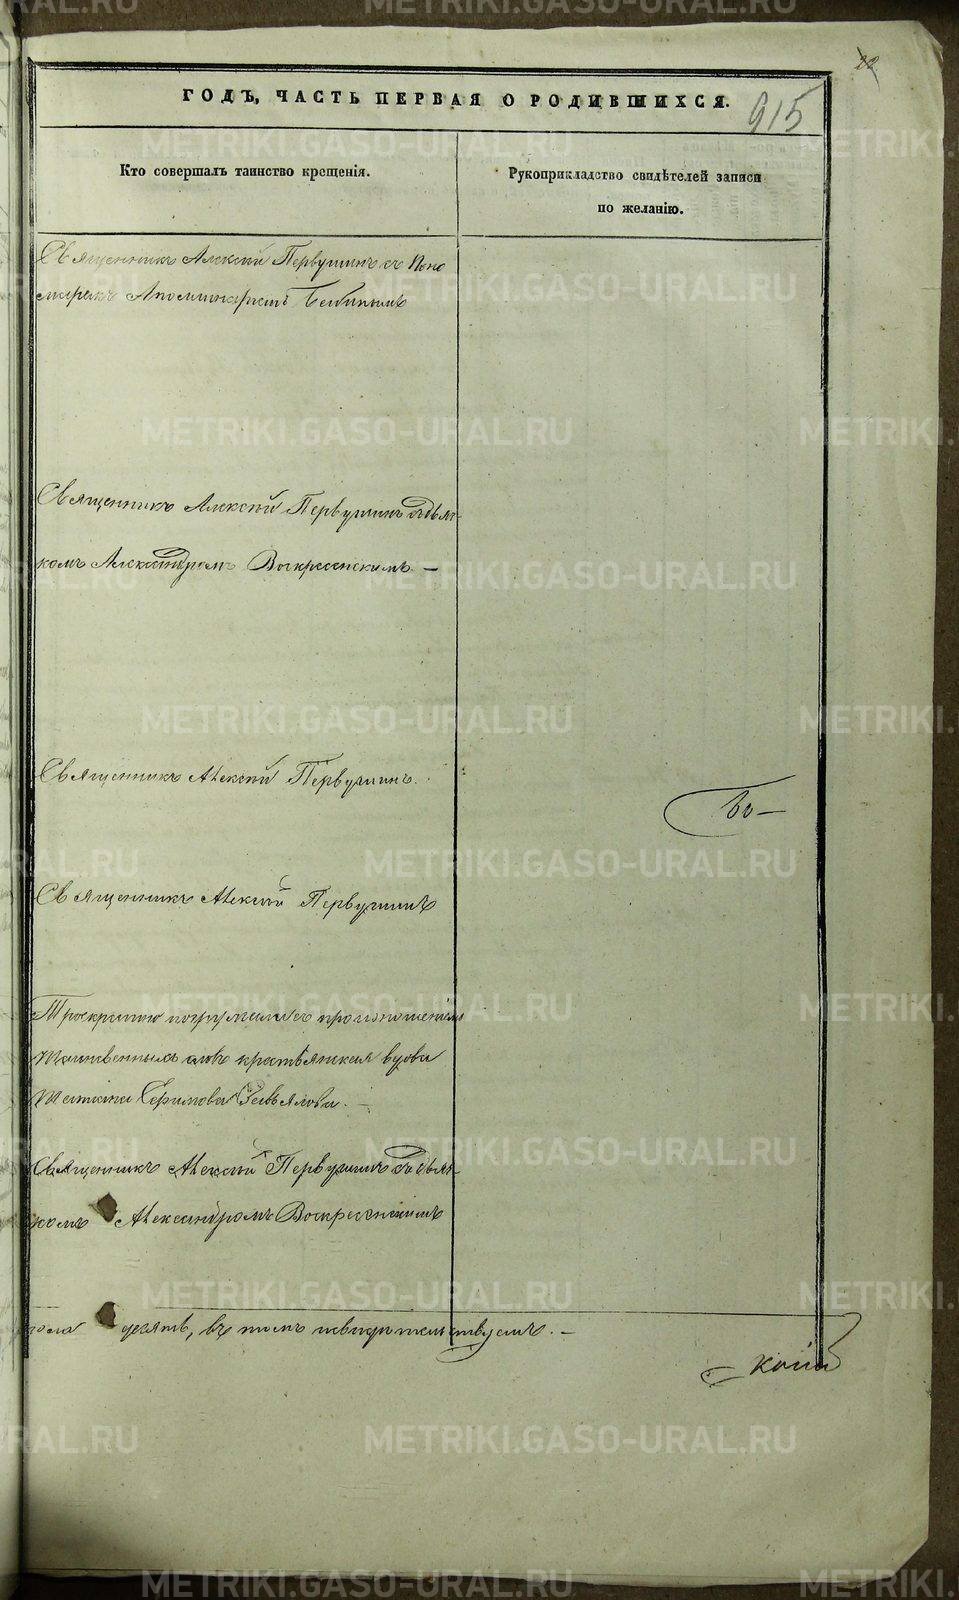 22
ГОДЪ, ЧАСТЬ ПЕРВАЯ О РОДИВШИХСЯ.
915
Кто совершалъ таинство крещенія.
Рукоприкладство свидѣтелей записи
по желанію.
Священникъ Алексій Первушинъ съ Поно
маремъ Аполинаріемъ
Священникъ Алексій Первушинъ съ дья-
комъ Александромъ Воскресенскимъ. —
Священникъ Алексій Первушинъ.
Во —
Священникъ Алексій Первушинъ
съ произношеніемъ
словъ крестьянская вдова
Татіана Ефимова Завьялова. —
Священникъ Алексій Первушинъ съ дья-
комъ Александромъ Воскресенскимъ
девять, въ томъ и свидѣтельствуемъ. —
METRIKI.GASO-URAL.RU